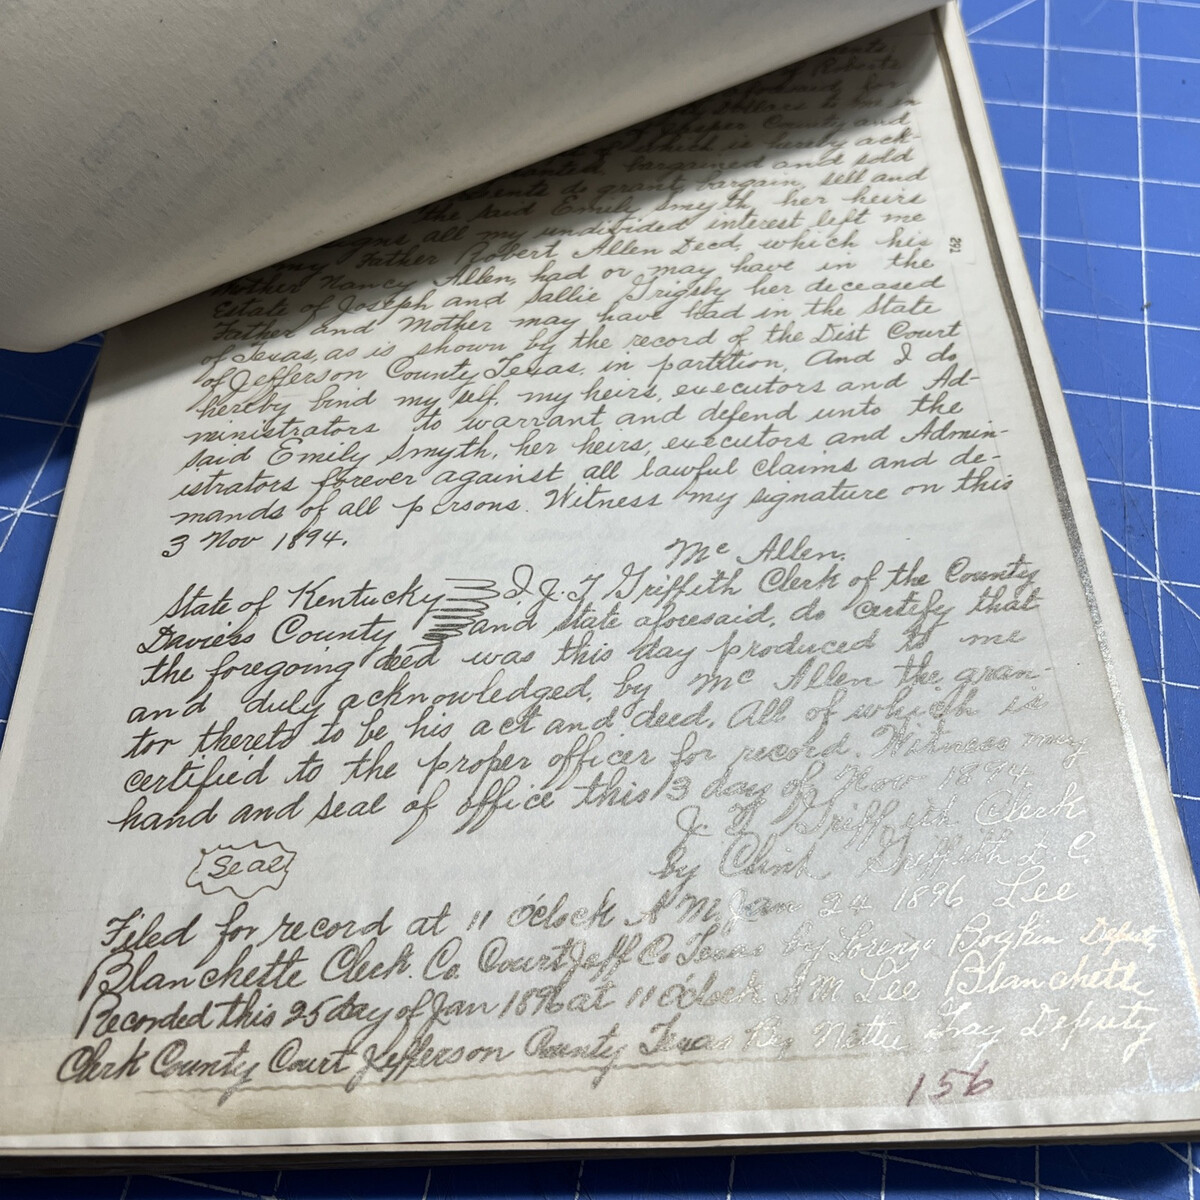 Roberts
for
Dollars to me in
Jasper County and
which is hereby ack-
bargained and sold
do grant, bargain, sell and
the said Emily Smyth her heirs
all my undivided interest left me
my Father Robert Allen Decd, which his
Mother Nancy Allen, had or may have in the
Estate of Joseph and Sallie Grigsby her deceased
Father and Mother may have had in the State
of Texas, as is shown by the record of the Dist Court
of Jefferson County, Texas, in partition, And I do
hereby bind my self, my heirs, executors and Ad-
ministrators to warrant and defend unto the
said Emily Smyth, her heirs, executors and Admin-
istrators forever against all lawful claims and de-
mands of all persons. Witness my signature on this
3 Nov 1894.
Mc Allen.
State of Kentucky I. J. T Griffith Clerk of the County
Daviess County and State aforesaid, do certify that
the foregoing deed was this day produced to me
and duly acknowledged, by Mc Allen the gran-
tor thereto to be his act and deed. All of which is
certified to the proper officer for record. Witness my
hand and seal of office this 3 day of Nov 1894
J. T Griffith Clerk
Seal
by Clint Griffith D. C.
Filed for record at 11 O'clock A M. Jan 24 1896 Lee
Blanchette Clerk. Co. Court Jeff Co Texas by Lorenzo Boykin Deputy
Recorded this 25 day of Jan 1896 at 11 O'clock A M Lee Blanchette
Clerk County Court Jefferson County Texas By Nettie Gay Deputy
156
291